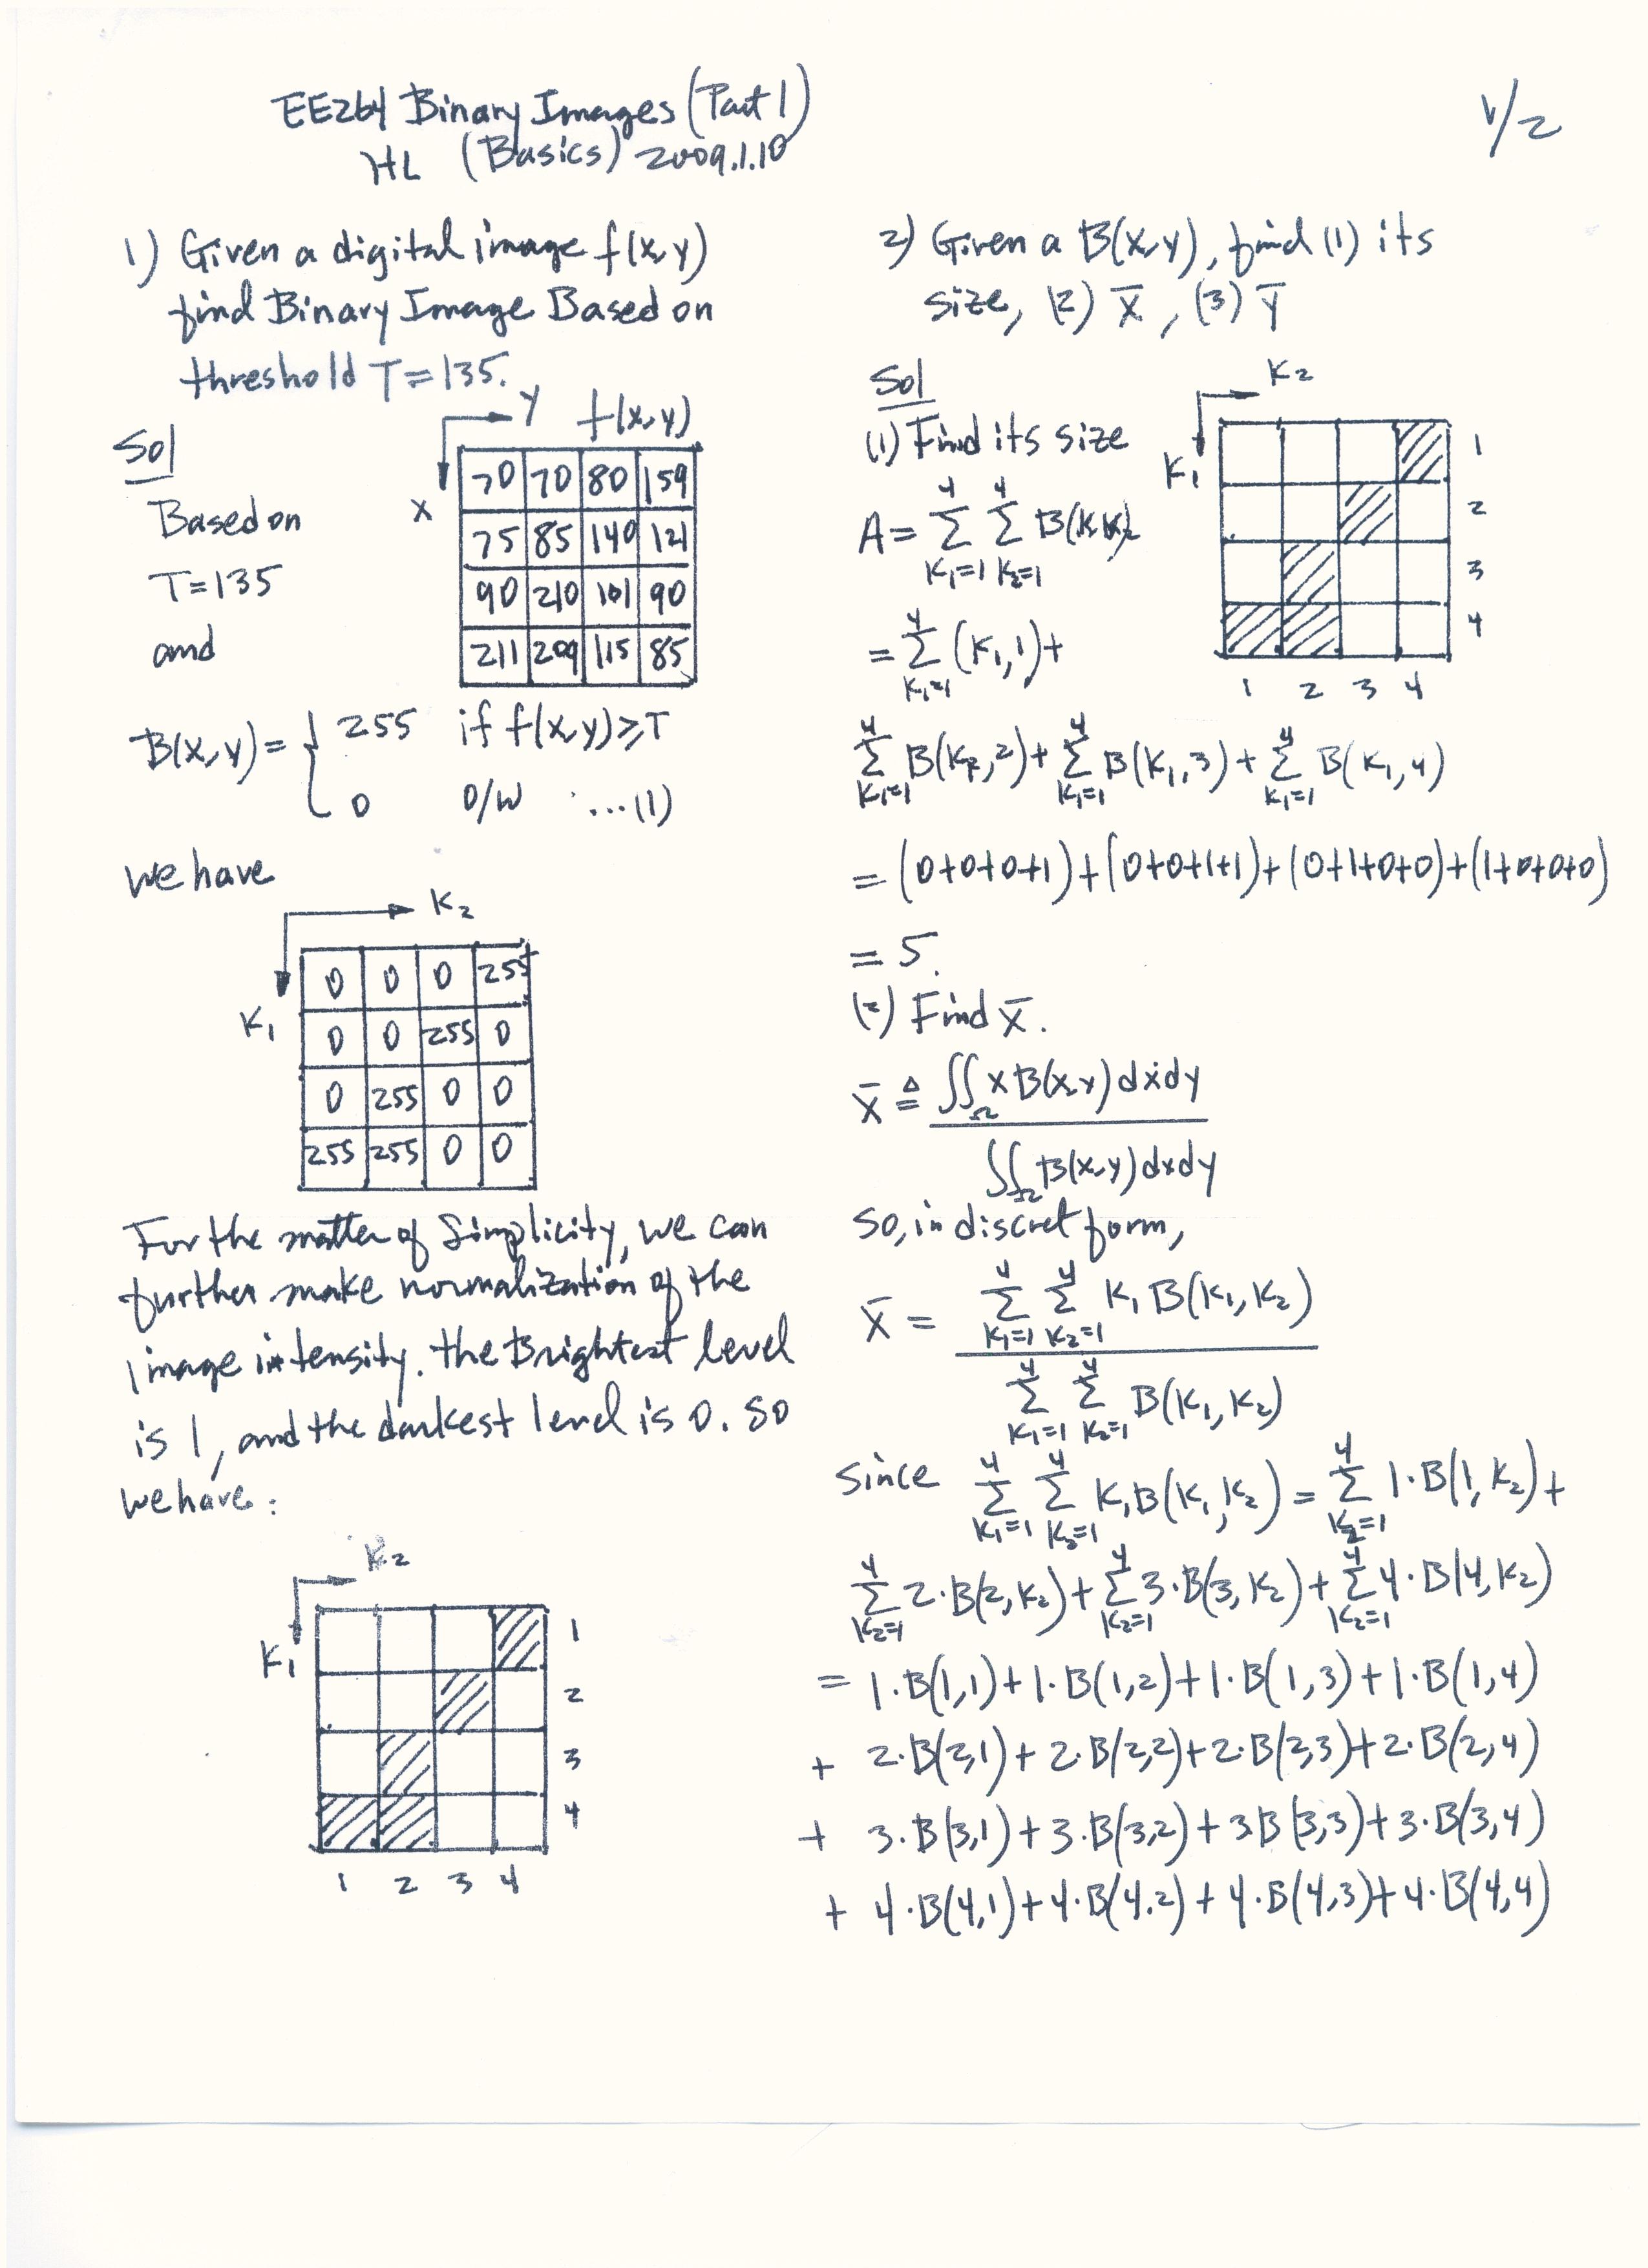 EE264 Binary Images (Part 1)
HL (Basics) 2009.1.10
1/2
1) Given a digital image f(x,y)
find Binary Image Based on
threshold T=135.
Sol
Based on
T=135
and
Y f(x,y)
X
70 70 80 159
75 85 140 121
90 210 101 90
211 209 115 85
B(x,y) = { 255 if f(x,y) ≥ T
0 O/W ...(1)
we have
K2
K1
0 0 0 255
0 0 255 0
0 255 0 0
255 255 0 0
For the matter of Simplicity, we can
further make normalization of the
image intensity. the Brightest level
is 1, and the darkest level is 0. So
we have:
K2
K1
1
2
3
4
1 2 3 4
2) Given a B(x,y), find (1) its
size, (2) X̅, (3) Y̅
Sol
(1) Find its size
K2
K1
1
2
3
4
1 2 3 4
A = Σ_{K1=1}^{4} Σ_{K2=1}^{4} B(K1,K2)
= Σ_{K1=1}^{4} (K1,1) +
Σ_{K1=1}^{4} B(K1,2) + Σ_{K1=1}^{4} B(K1,3) + Σ_{K1=1}^{4} B(K1,4)
= (0+0+0+1)+(0+0+1+1)+(0+1+0+0)+(1+0+0+0)
= 5.
(2) Find X̅.
X̅ ≜ ∬_Ω x B(x,y) dxdy
∬_Ω B(x,y) dxdy
So, in discret form,
X̅ = Σ_{K1=1}^{4} Σ_{K2=1}^{4} K1 B(K1,K2)
Σ_{K1=1}^{4} Σ_{K2=1}^{4} B(K1,K2)
Since Σ_{K1=1}^{4} Σ_{K2=1}^{4} K1 B(K1,K2) = Σ_{K2=1}^{4} 1·B(1,K2) +
Σ_{K2=1}^{4} 2·B(2,K2) + Σ_{K2=1}^{4} 3·B(3,K2) + Σ_{K2=1}^{4} 4·B(4,K2)
= 1·B(1,1) + 1·B(1,2) + 1·B(1,3) + 1·B(1,4)
+ 2·B(2,1) + 2·B(2,2) + 2·B(2,3) + 2·B(2,4)
+ 3·B(3,1) + 3·B(3,2) + 3B(3,3) + 3·B(3,4)
+ 4·B(4,1) + 4·B(4,2) + 4·B(4,3) + 4·B(4,4)